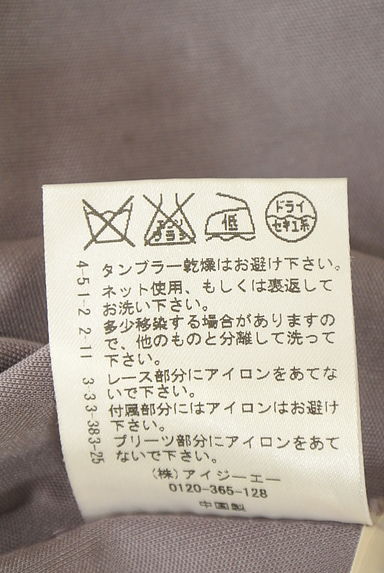 エンソ
サラシ
低
ドライ
セキユ系
4-5 1-2 2-11 3-3-3-383-25
タンブラー乾燥はお避け下さい。
ネット使用、もしくは裏返して
お洗い下さい。
多少移染する場合がありますの
で、他のものと分離して洗って
下さい。
レース部分にアイロンをあてな
いで下さい。
付属部分にはアイロンはお避け
下さい。
プリーツ部分にアイロンをあて
ないで下さい。
(株)アイジーエー
0120-365-128
中国製